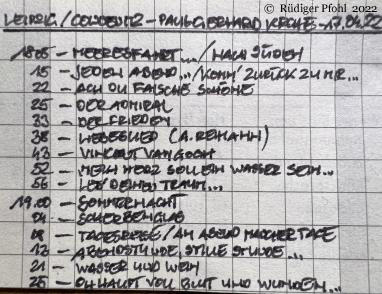 © Rüdiger Pfohl 2022
LEIPZIG / CONNEWITZ - PAUL-GERHARD KIRCHE - 17.09.22
18.05 - MEERESFAHRT.../ NACH SÜDEN
15 - JEDEN ABEND.../ KOMM' ZURÜCK ZU MIR...
22 - ACH DU FALSCHE SCHÖNE
25 - DER ADMIRAL
33 - DER FRIEDEN
38 - LIEBESLIED (A. REIMANN)
43 - VINCENT VAN GOGH
52 - MEIN HERZ SOLL EIN WASSER SEIN...
56 - LEB' DEINEN TRAUM...
19.00 - SOMMERNACHT
04 - SCHERBENGLAS
08 - TAGESREISE / AM ABEND MANCHER TAGE
12 - ABENDSTUNDE, STILLE STUNDE...
21 - WASSER UND WEIN
25 - OH HAUPT VOLL BLUT UND WUNDEN...